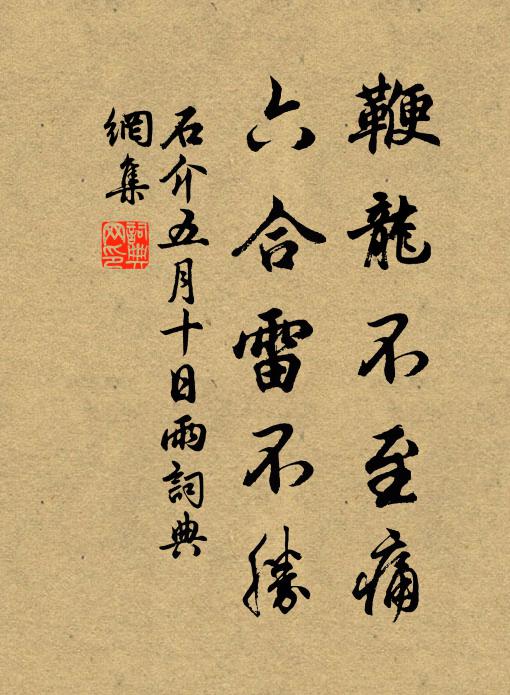 鞭龍不至痛
六合雷不勝
石介五月十日雨詞典
網集
詞典
网印